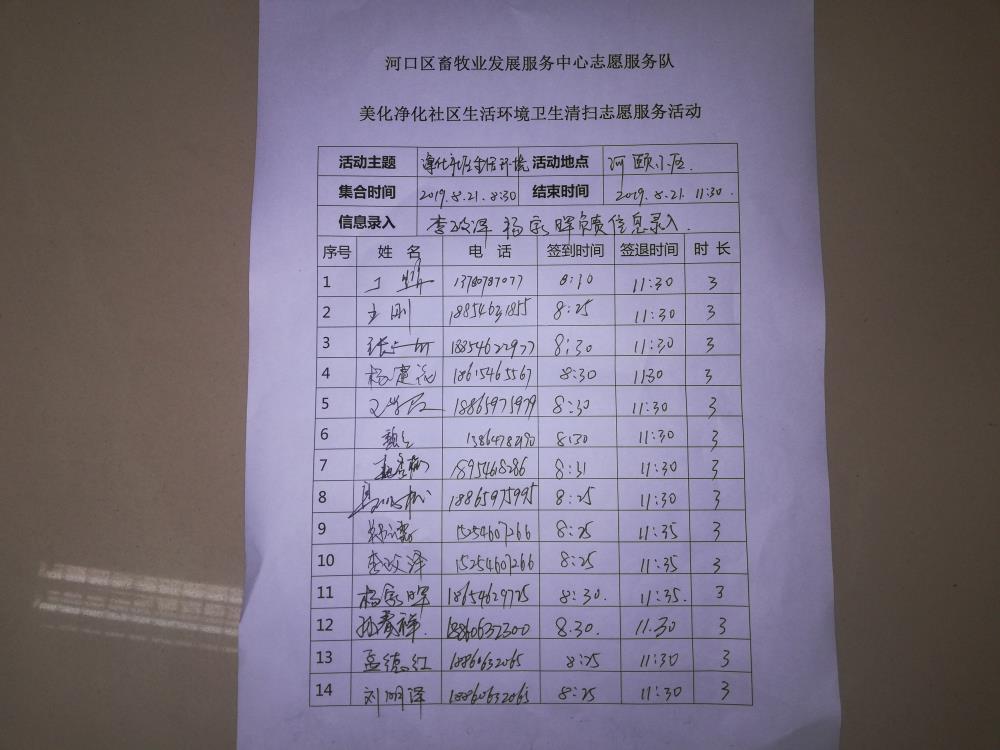 河口区畜牧业发展服务中心志愿服务队
美化净化社区生活环境卫生清扫志愿服务活动
活动主题 净化社区生活环境 活动地点 河颐小区.
集合时间 2019.8.21. 8:30 结束时间 2019.8.21. 11:30.
信息录入 李政泽 杨家晖负责信息录入.
序号 姓 名 电 话 签到时间 签退时间 时 长
1 13780787077 8:30 11:30 3
2 王刚 18854631855 8:25 11:30 3
3 18854622977 8:30 11:30 3
4 杨建花 18615465567 8:30 1130 3
5 18865975979 8:30 11:30 3
6 8:30 11:30 3
7 8:31 11:30 3
8 18865975995 8:25 11:30 3
9 15254607266 8:25 11:35 3
10 李政泽 15254607266 8:25 11:35 3
11 杨家晖 18654629725 8:30. 11:35. 3
12 孙春祥. 18860632300 8.30. 11.30 3
13 孟德红 18860632065 8:25 11:30 3
14 刘明泽 18860632065 8:25 11:30 3